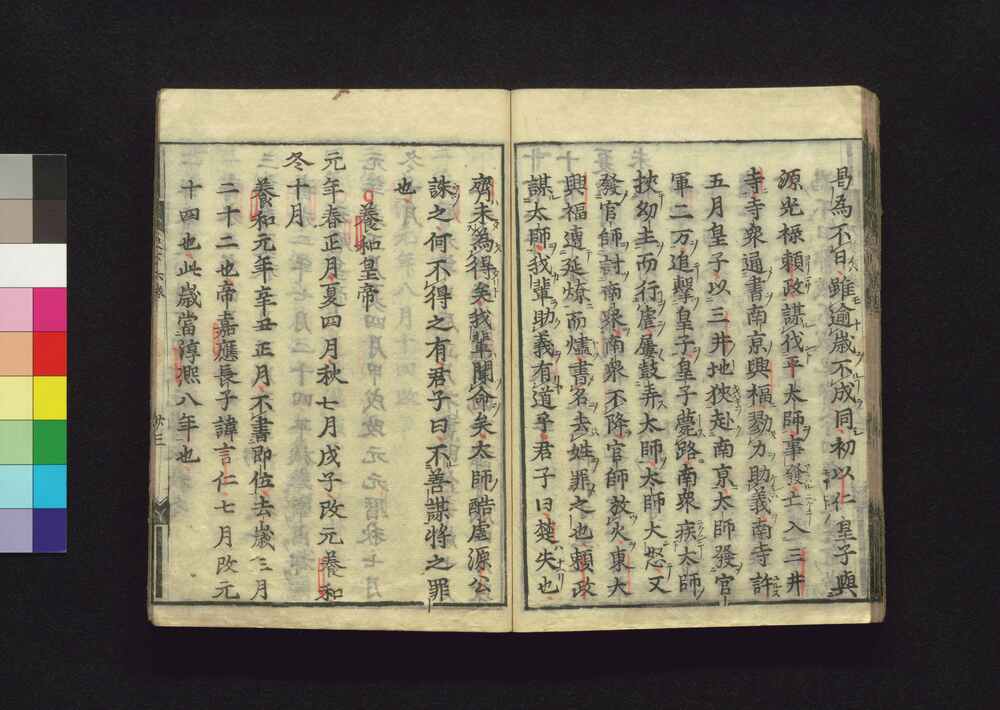 曷為不日雖逾歳不成同初以仁皇子與
源光祿頼政謀伐平太師事發亡入三井
寺寺衆通書南京興福勠力助義南寺許
五月皇子以三井地狹赴南京太師發官
軍二万追擊皇子皇子薨路南衆疾太師
挾幼主而行虐屢鼓弄太師太師大怒又
發官師討南衆南衆不降官師放火東大
興福遭延燎而燼書名去姓罪之也頼政
謀太師我輩助義有道乎君子曰楚失也
齊未為得矣我輩聞命矣太師酷虐源公
誅之何不得之有君子曰不善謀將之罪
也
養和皇帝
元年春正月夏四月秋七月戊子改元養和
冬十月
養和元年辛丑正月不書即位去歳三月
二十二也帝嘉應長子諱言仁七月改元
十四也此歳當淳熙八年也
廿三